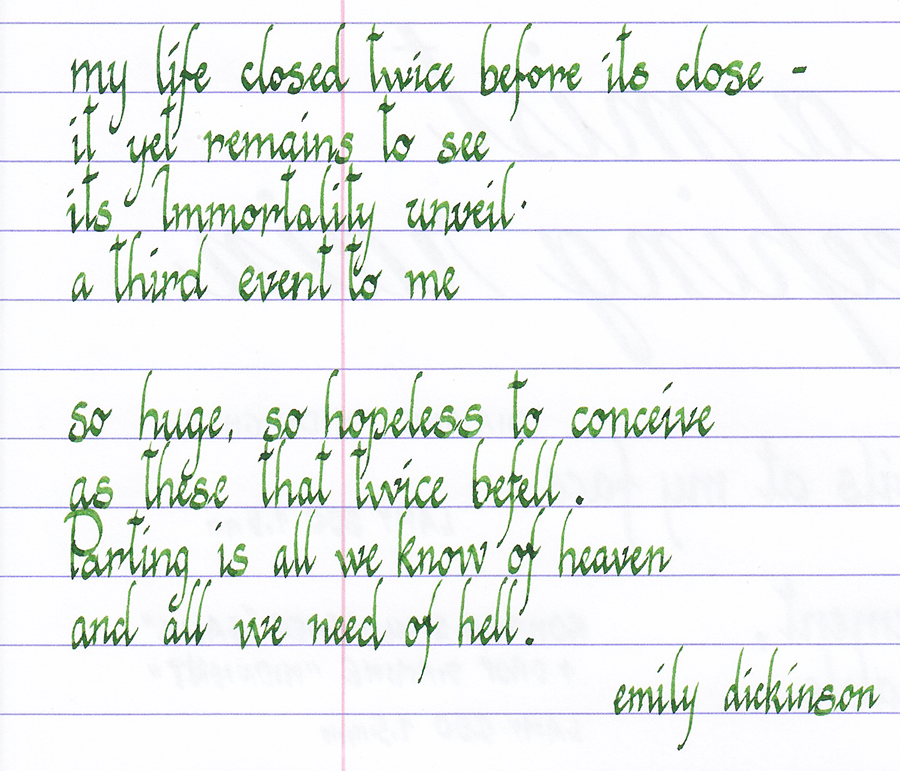 my life closed twice before its close -
it yet remains to see
its Immortality unveil.
a third event to me
so huge, so hopeless to conceive
as these that twice befell.
Parting is all we know of heaven
and all we need of hell.
emily dickinson